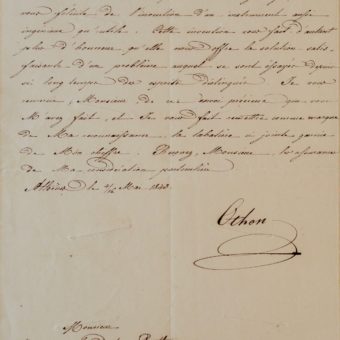 vous félicite de l'invention d'un instrument aussi
ingénieux qu'utile. Cette invention vous fait d'autant
plus d'honneur qu'elle nous offre la solution satis-
faisante d'un problème auquel se sont essayés depuis
si long temps des esprits distingués. Je vous
remercie, Monsieur de l'envoi précieux que vous
M'avez fait, et Je vous fait remettre comme marque
de Ma reconnaissance la tabatière ci jointe garnie
de Mon chiffre. Recevez, Monsieur l'assurance
de Ma considération particulière
Athènes le 4/16 Mai 1843
Othon
Monsieur